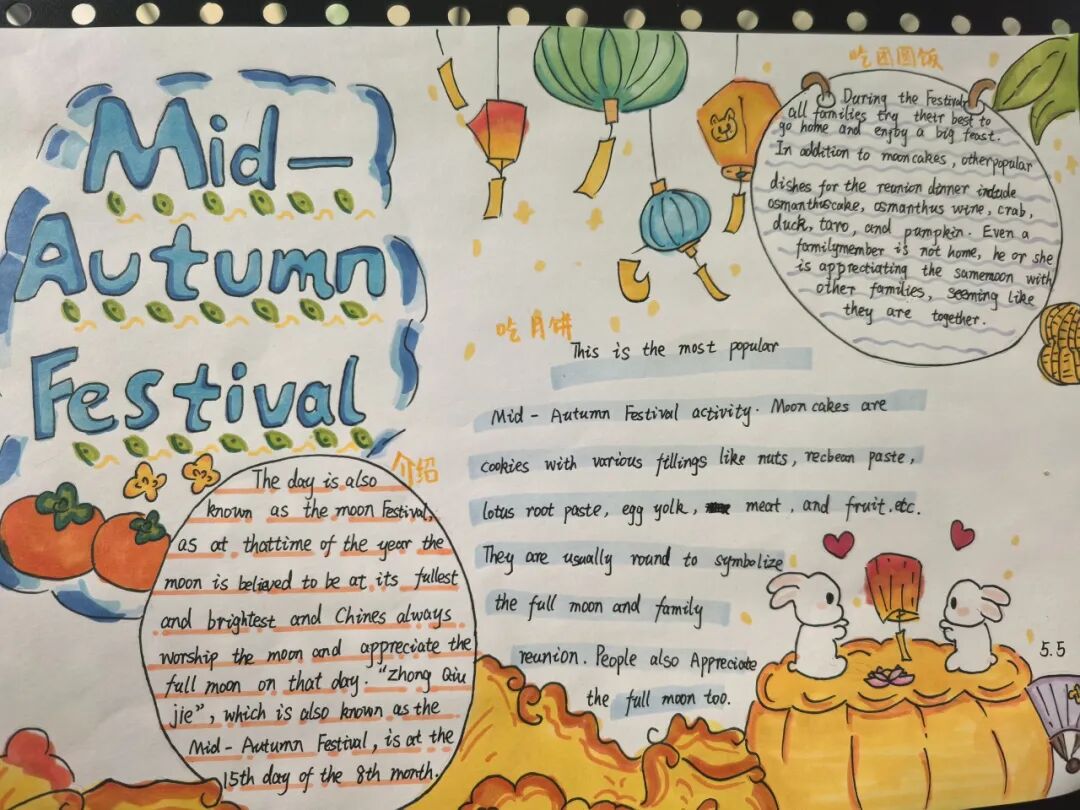 Mid-
Autumn
Festival
介绍
The day is also
known as the moon Festival,
as at thattime of the year the
moon is believed to be at its fullest
and brightest and Chines always
worship the moon and appreciate the
full moon on that day. "Zhong Qiu
jie", which is also known as the
Mid-Autumn Festival, is at the
15th day of the 8th month.
吃月饼
This is the most popular
Mid-Autumn Festival activity. Moon cakes are
cookies with various fillings like nuts, recbean paste,
lotus root paste, egg yolk, meat, and fruit.etc.
They are usually round to symbolize
the full moon and family
reunion. People also Appreciate
the full moon too.
吃团圆饭
During the Festival
all families try their best to
go home and enjoy a big feast.
In addition to mooncakes, otherpopular
dishes for the reunion dinner include
osmanthuscake, osmanthus wine, crab,
duck, taro, and pumpkin. Even a
familymember is not home, he or she
is apprectiating the samemoon with
other families, seeming like
they are together.
5.5